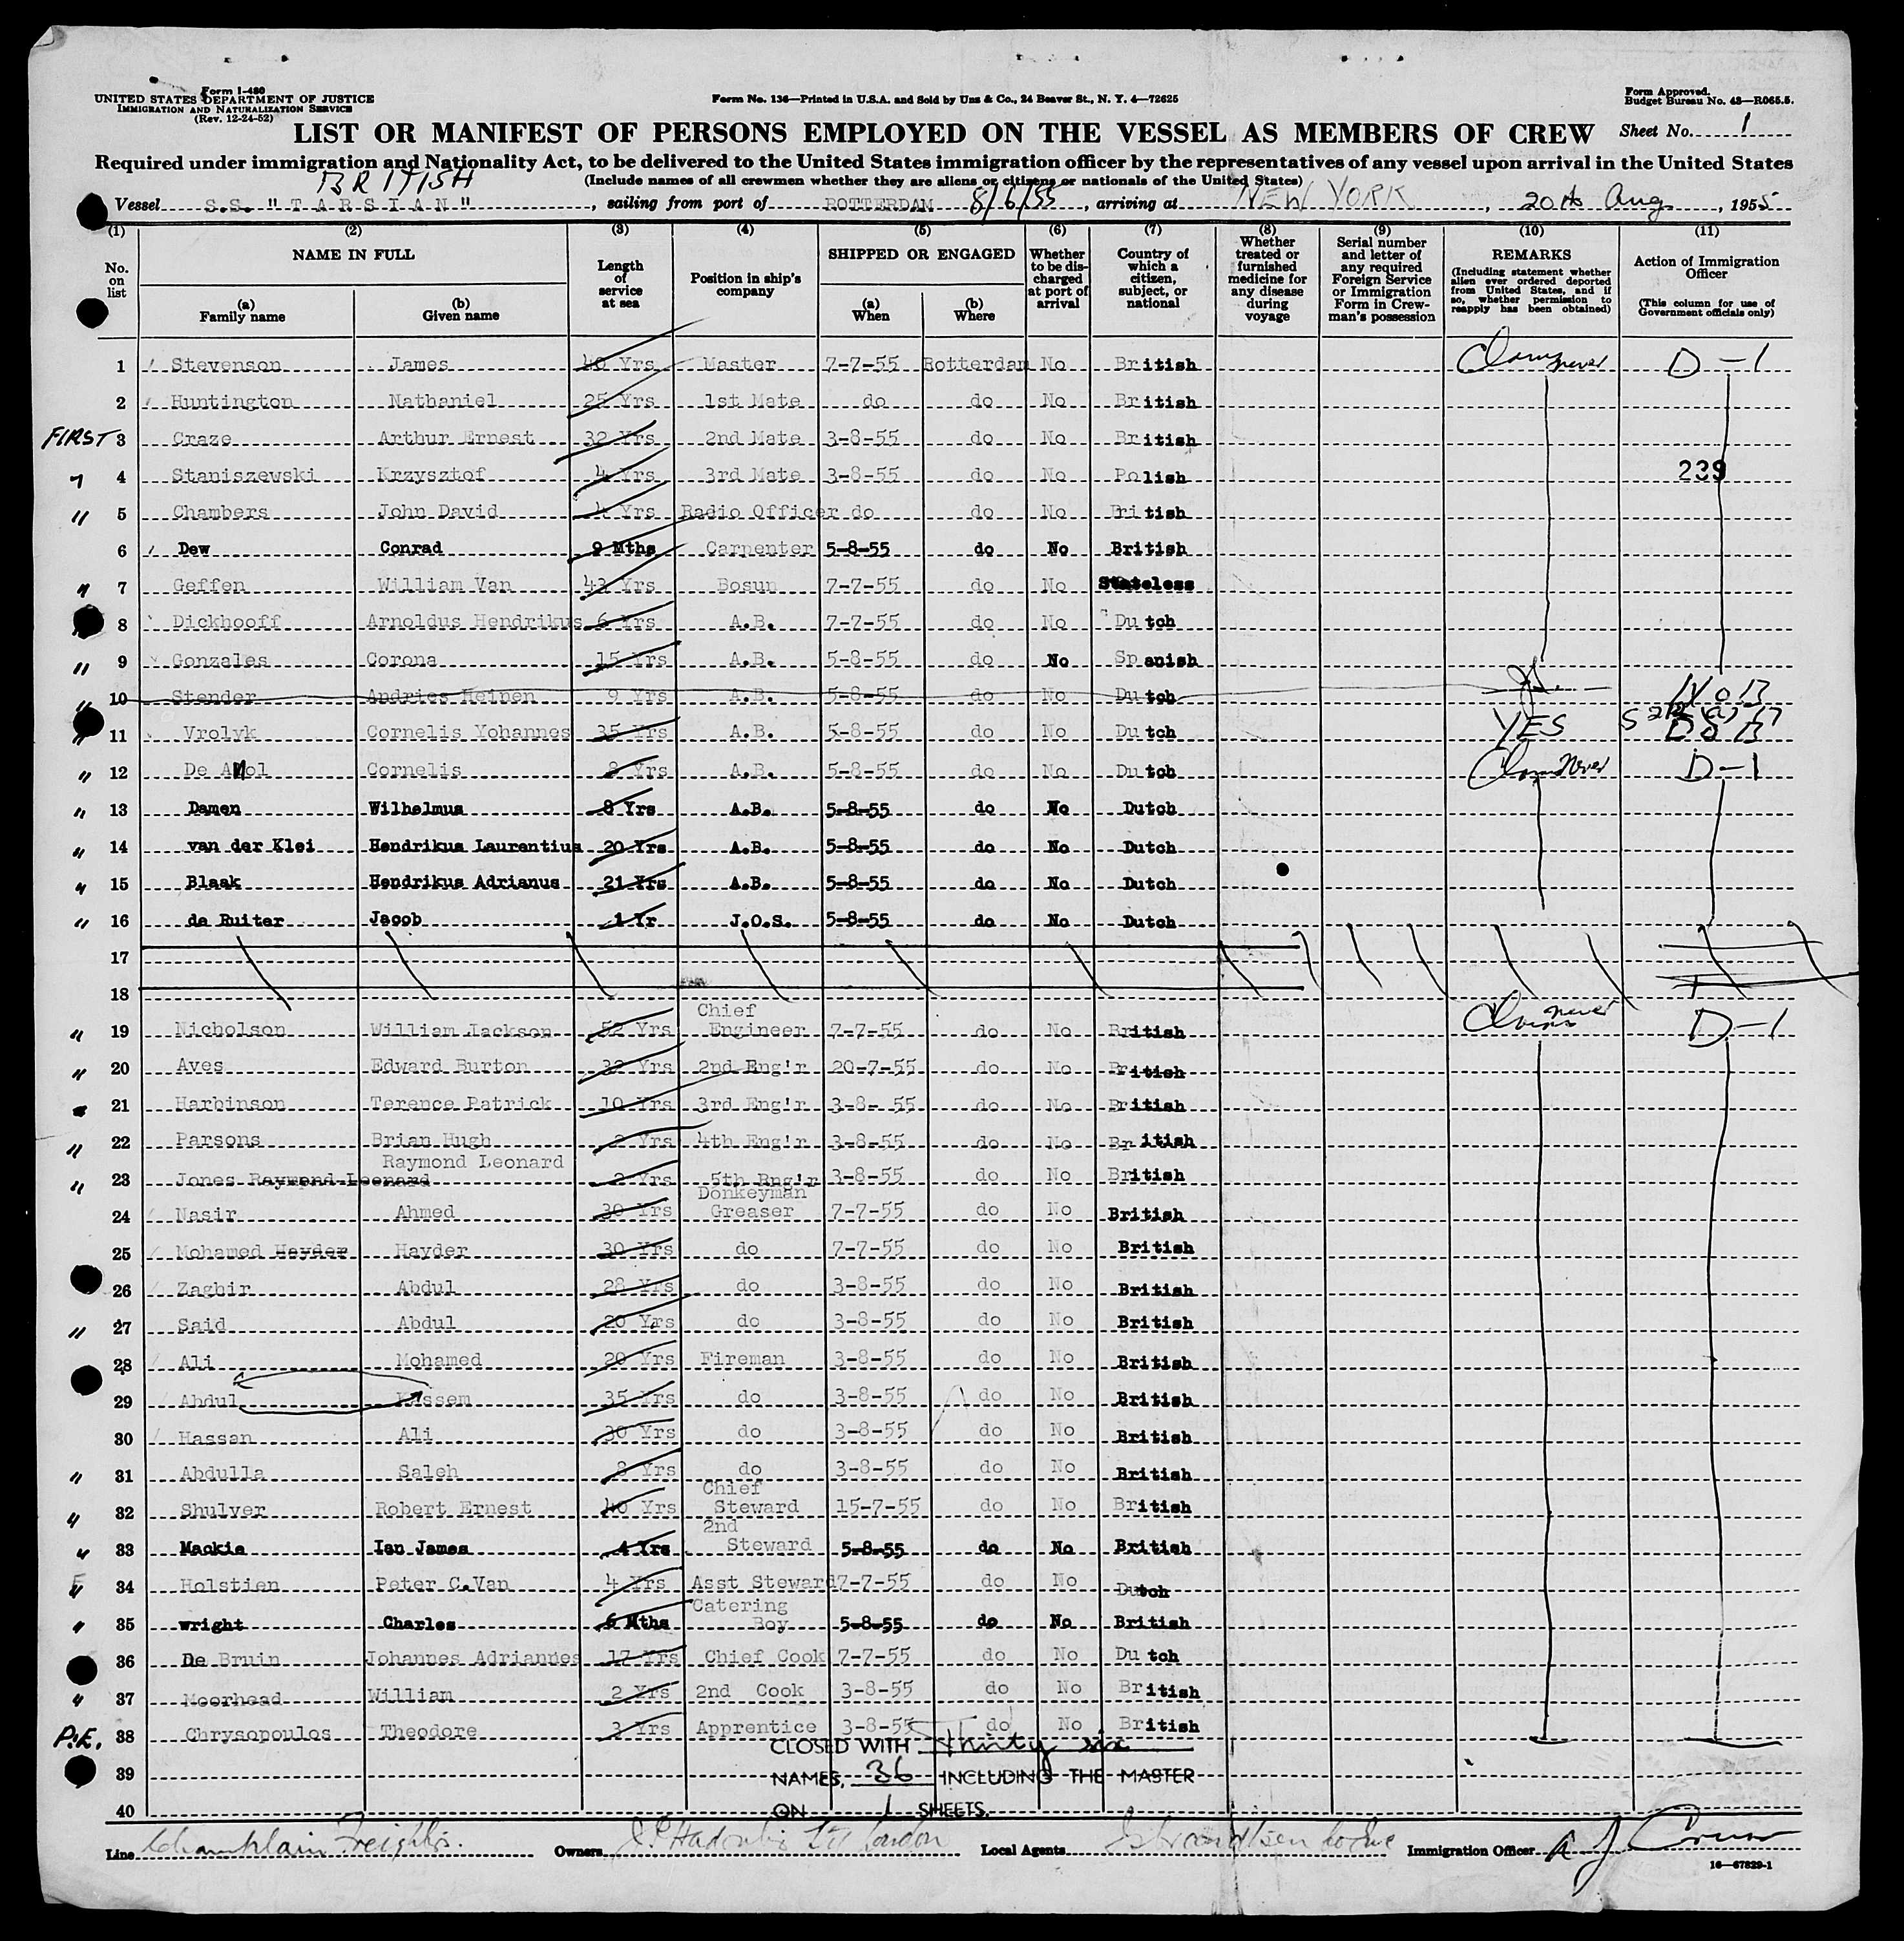 Form I-480
UNITED STATES DEPARTMENT OF JUSTICE
IMMIGRATION AND NATURALIZATION SERVICE
(Rev. 12-24-52)
Form No. 136—Printed in U.S.A. and Sold by Unz & Co., 24 Beaver St., N. Y. 4—72625
Form Approved.
Budget Bureau No. 43—R065.5.
LIST OR MANIFEST OF PERSONS EMPLOYED ON THE VESSEL AS MEMBERS OF CREW Sheet No. 1
Required under immigration and Nationality Act, to be delivered to the United States immigration officer by the representatives of any vessel upon arrival in the United States
(Include names of all crewmen whether they are aliens or citizens or nationals of the United States)
BRITISH
Vessel S.S. "TARSIAN", sailing from port of ROTTERDAM 8/6/55, arriving at NEW YORK, 20th Aug, 1955
(1) (2) (3) (4) (5) (6) (7) (8) (9) (10) (11)
No. on list
NAME IN FULL
(a) Family name
(b) Given name
Length of service at sea
Position in ship's company
SHIPPED OR ENGAGED
(a) When
(b) Where
Whether to be discharged at port of arrival
Country of which a citizen, subject, or national
Whether treated or furnished medicine for any disease during voyage
Serial number and letter of any required Foreign Service or Immigration Form in Crewman's possession
REMARKS
(Including statement whether alien ever ordered deported from United States, and if so, whether permission to reapply has been obtained)
Action of Immigration Officer
(This column for use of Government officials only)
1 Stevenson James 40 Yrs Master 7-7-55 Rotterdam No British Claims never D-1
2 Huntington Nathaniel 25 Yrs 1st Mate do do No British
FIRST 3 Craze Arthur Ernest 32 Yrs 2nd Mate 3-8-55 do No British
4 Staniszewski Krzysztof 4 Yrs 3rd Mate 3-8-55 do No Polish 239
" 5 Chambers John David 4 Yrs Radio Officer do do No British
6 Dew Conrad 9 Mths Carpenter 5-8-55 do No British
" 7 Geffen William Van 43 Yrs Bosun 7-7-55 do No Stateless
8 Dickhooff Arnoldus Hendrikus 6 Yrs A.B. 7-7-55 do No Dutch
" 9 Gonzales Corona 15 Yrs A.B. 5-8-55 do No Spanish
" 10 Stender Andries Heinen 9 Yrs A.B. 5-8-55 do No Dutch NOB
" 11 Vrolyk Cornelis Yohannes 35 Yrs A.B. 5-8-55 do No Dutch YES
" 12 De Mol Cornelis 8 Yrs A.B. 5-8-55 do No Dutch Claims Never D-1
" 13 Damen Wilhelmus 8 Yrs A.B. 5-8-55 do No Dutch
" 14 van der Klei Hendrikus Laurentius 20 Yrs A.B. 5-8-55 do No Dutch
" 15 Blaak Hendrikus Adrianus 21 Yrs A.B. 5-8-55 do No Dutch
" 16 de Ruiter Jacob 1 Yr J.O.S. 5-8-55 do No Dutch
17
18
" 19 Nicholson William Jackson 52 Yrs Chief Engineer 7-7-55 do No British Claims never D-1
" 20 Aves Edward Burton 32 Yrs 2nd Eng'r 20-7-55 do No British
21 Harbinson Terence Patrick 10 Yrs 3rd Eng'r 3-8-55 do No British
" 22 Parsons Brian Hugh 2 Yrs 4th Eng'r 3-8-55 do No British
" 23 Jones Raymond Leonard Raymond Leonard 2 Yrs 5th Eng'r 3-8-55 do No British
24 Nasir Ahmed 30 Yrs Donkeyman Greaser 7-7-55 do No British
25 Mohamed Hayder Hayder 30 Yrs do 7-7-55 do No British
26 Zaghir Abdul 28 Yrs do 3-8-55 do No British
" 27 Said Abdul 20 Yrs do 3-8-55 do No British
28 Ali Mohamed 20 Yrs Fireman 3-8-55 do No British
29 Abdul Kassem 35 Yrs do 3-8-55 do No British
30 Hassan Ali 30 Yrs do 3-8-55 do No British
" 31 Abdulla Saleh 8 Yrs do 3-8-55 do No British
" 32 Shulver Robert Ernest 40 Yrs Chief Steward 15-7-55 do No British
" 33 Mackie Ian James 4 Yrs 2nd Steward 5-8-55 do No British
" 34 Holstien Peter C.Van 4 Yrs Asst Steward 7-7-55 do No Dutch
" 35 wright Charles 6 Mths Catering Boy 5-8-55 do No British
36 De Bruin Johannes Adriannes 17 Yrs Chief Cook 7-7-55 do No Dutch
" 37 Moorhead William 2 Yrs 2nd Cook 3-8-55 do No British
P.E. 38 Chrysopoulos Theodore 3 Yrs Apprentice 3-8-55 do No British
CLOSED WITH Thirty six
39
NAMES, 36 INCLUDING THE MASTER
40
ON 1 SHEETS.
Line Chamblain Freights. Owners Ltd London Local Agents Immigration Officer
16—67829-1